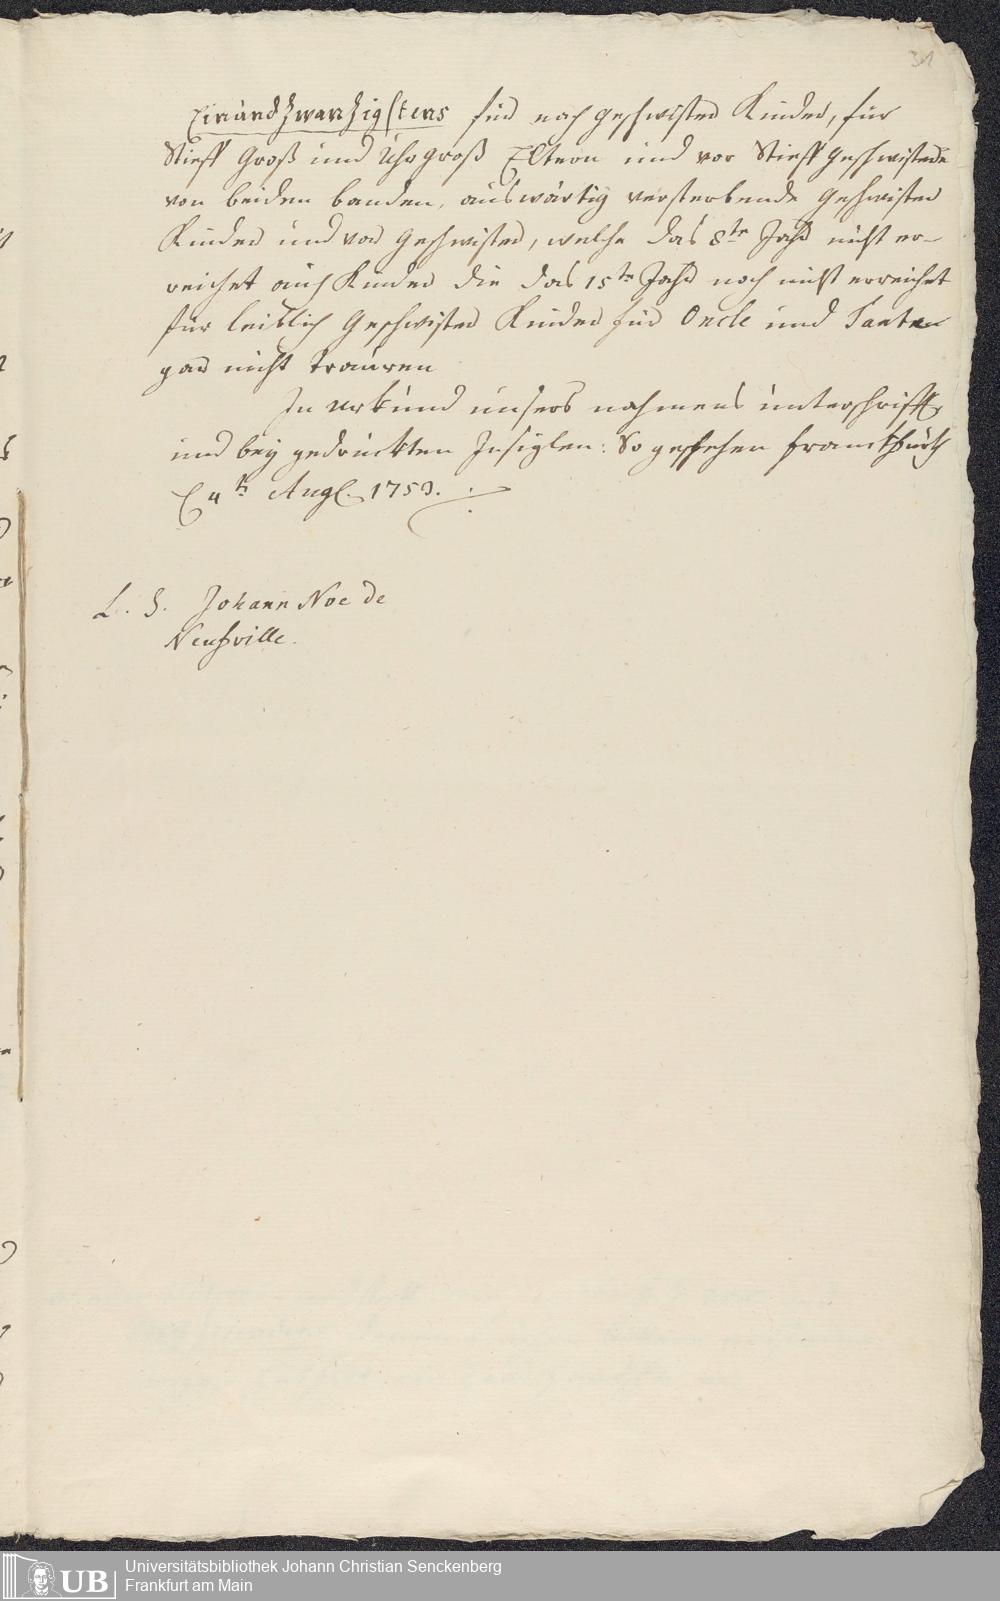 31
Einundzwanzigstens für nach geschwister Kinder, für
Stieff Groß und Uhrgroß Eltern und vor Stieff Geschwistere
von beiden banden, auswärtig versterbende Geschwister
Kinder und vor Geschwister, welche das 8te Jahr nicht er-
reichet auch Kinder die das 15te Jahr noch nicht erreichet
für leiblich Geschwister Kinder für Oncle und Tanten
gar nicht trauren
In Urkund unsers nahmens unterschrifft,
und bey gedruckten Insiglen: So geschehen Franckfurth
4t Aug. 1753.
L. S. Johann Noe de
Neufville.
UB
Universitätsbibliothek Johann Christian Senckenberg
Frankfurt am Main